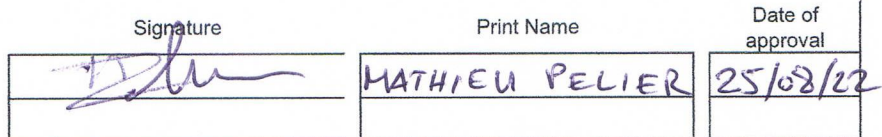 Signature Print Name Date of
approval
MATHIEU PELIER 25/08/22